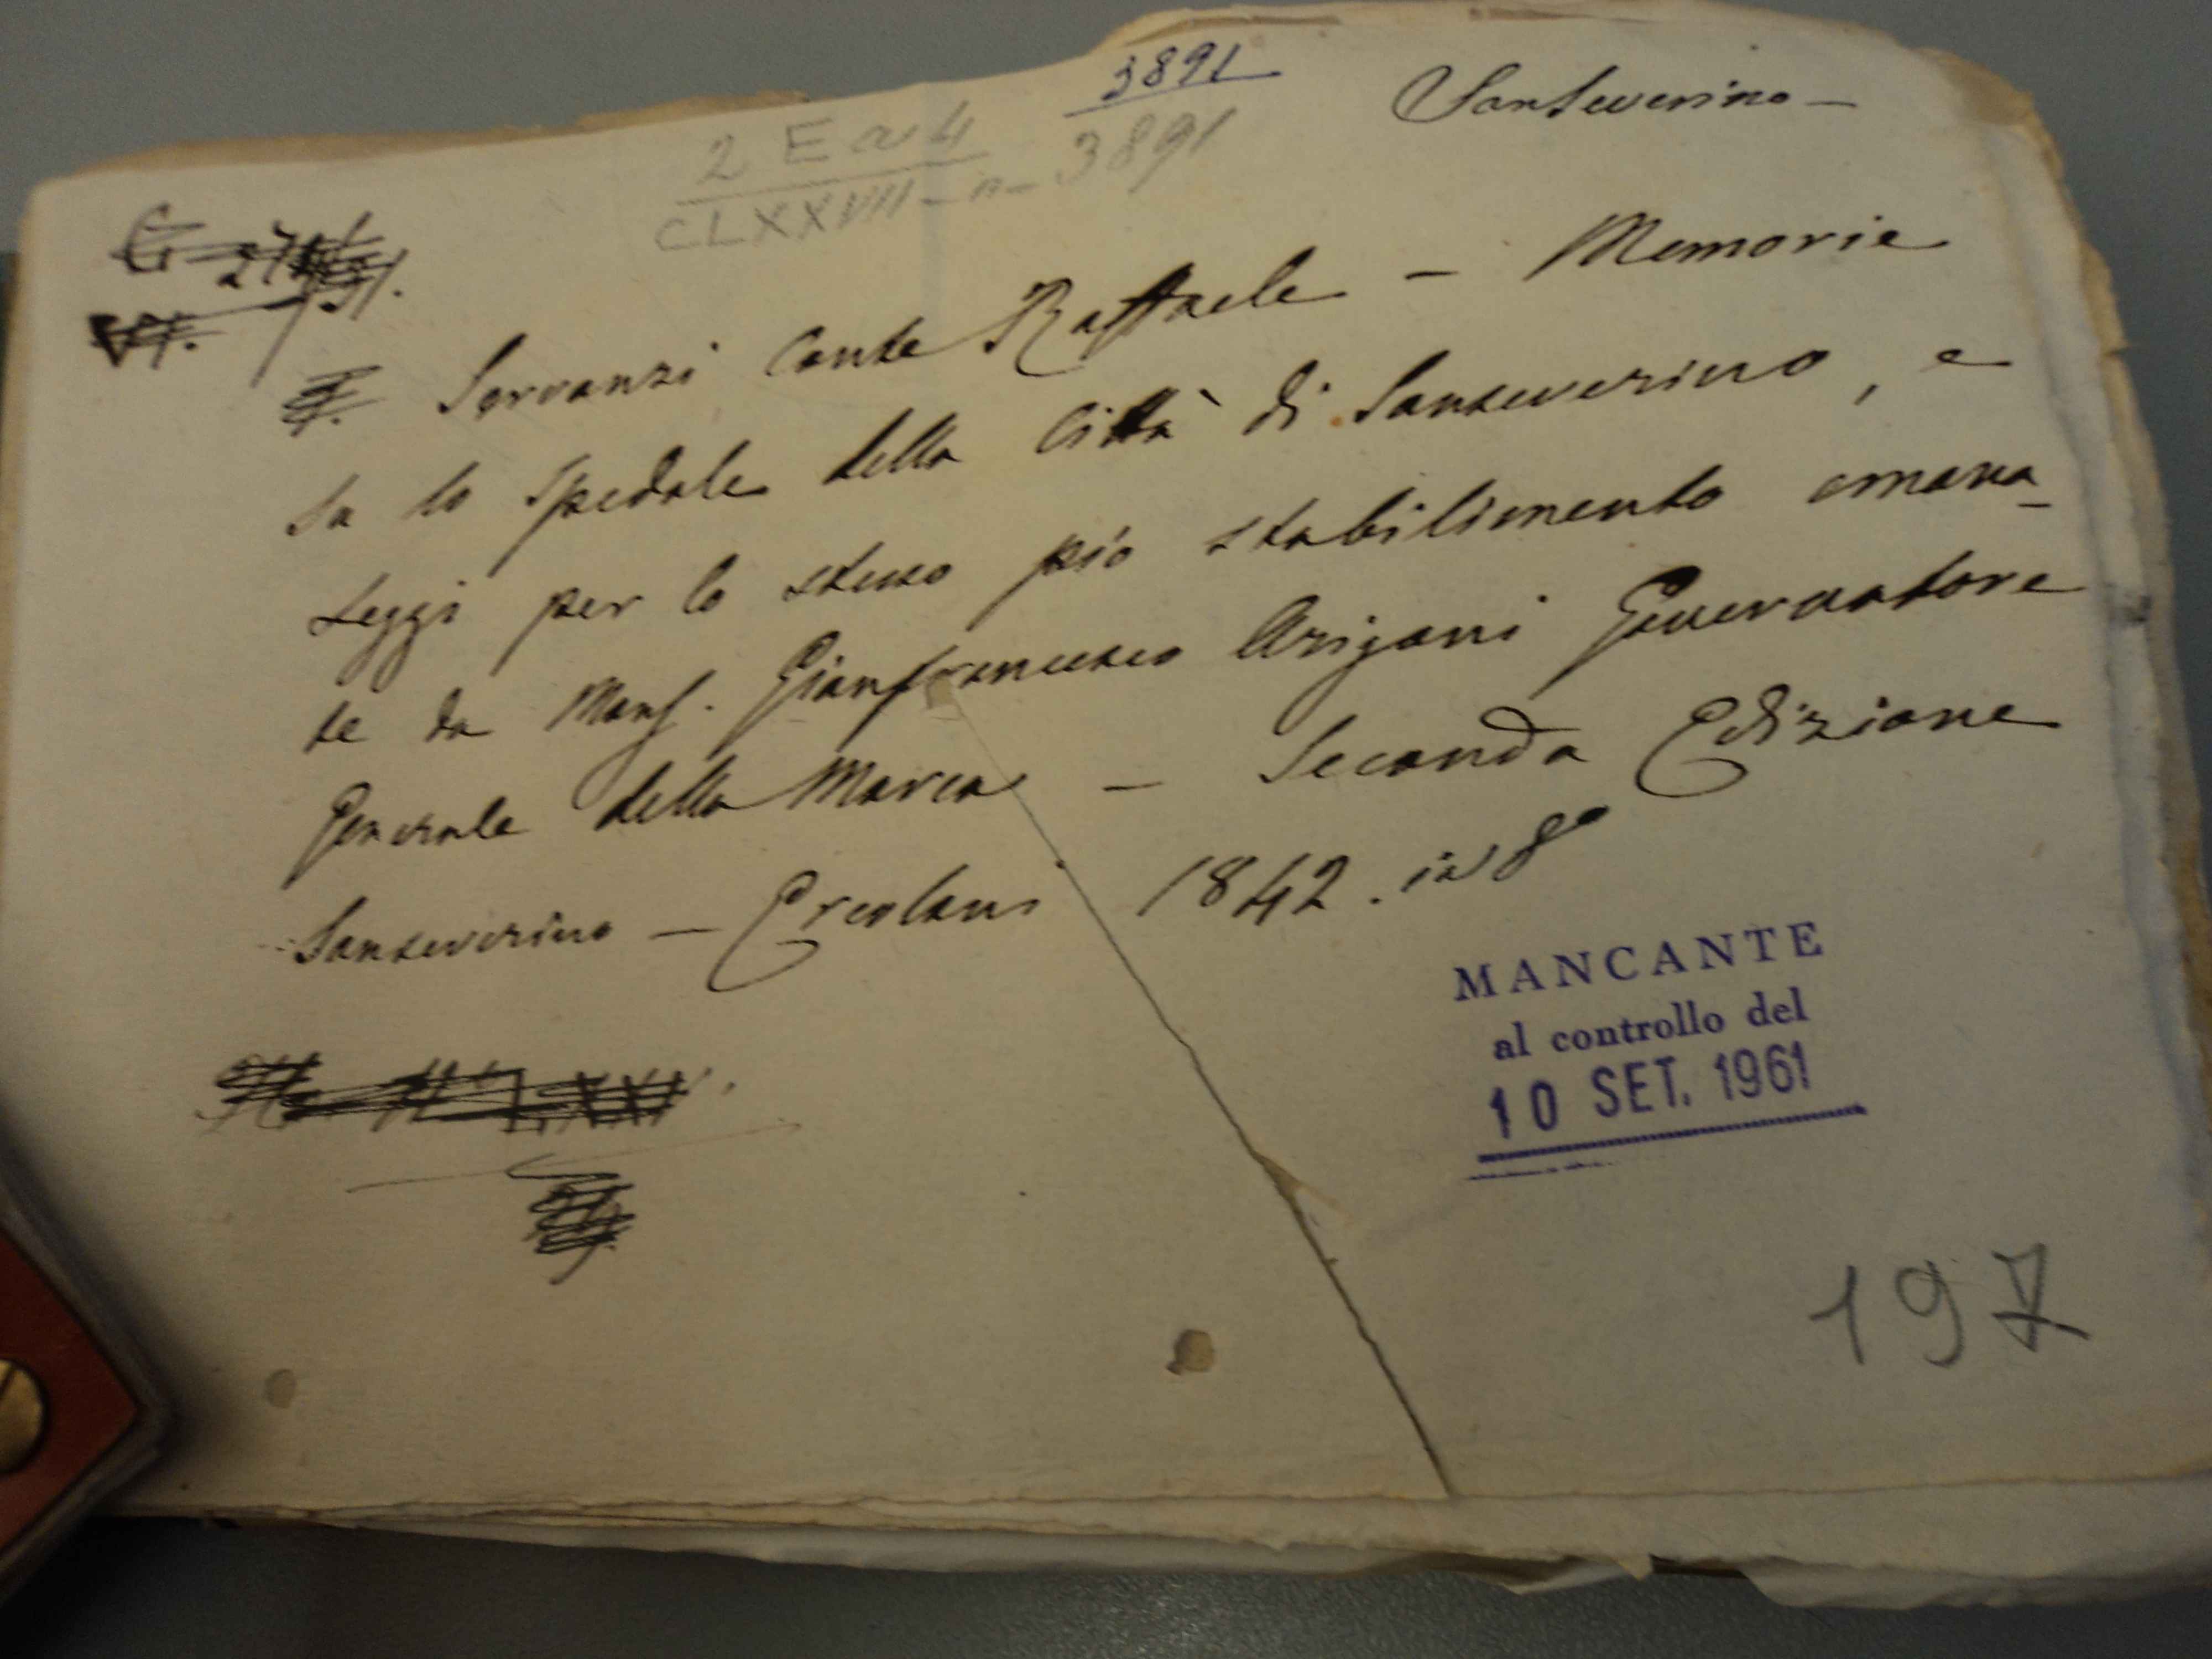 3891
Sanseverino —
2 E a 4
CLXXVII - n - 3891
Servanzi Conte Raffaele — Memorie
su lo Spedale della Città di Sanseverino, e
Leggi per lo stesso pio stabilimento emana-
te da Mons. Gianfrancesco Arigoni Governatore
Generale della Marca — Seconda Edizione
Sanseverino — Ercolani 1842. in 8°
MANCANTE
al controllo del
10 SET. 1961
197